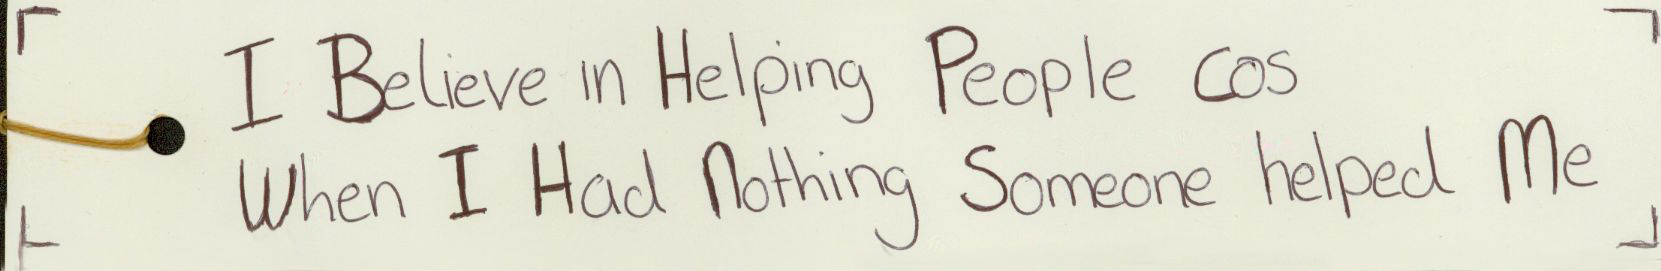 I Believe in Helping People cos
When I Had Nothing Someone helped Me